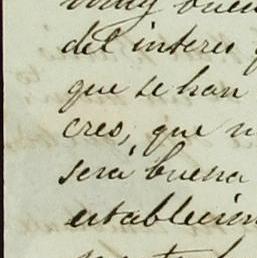 muy buen
del interes
que se han
creo, que
será buena
establecim